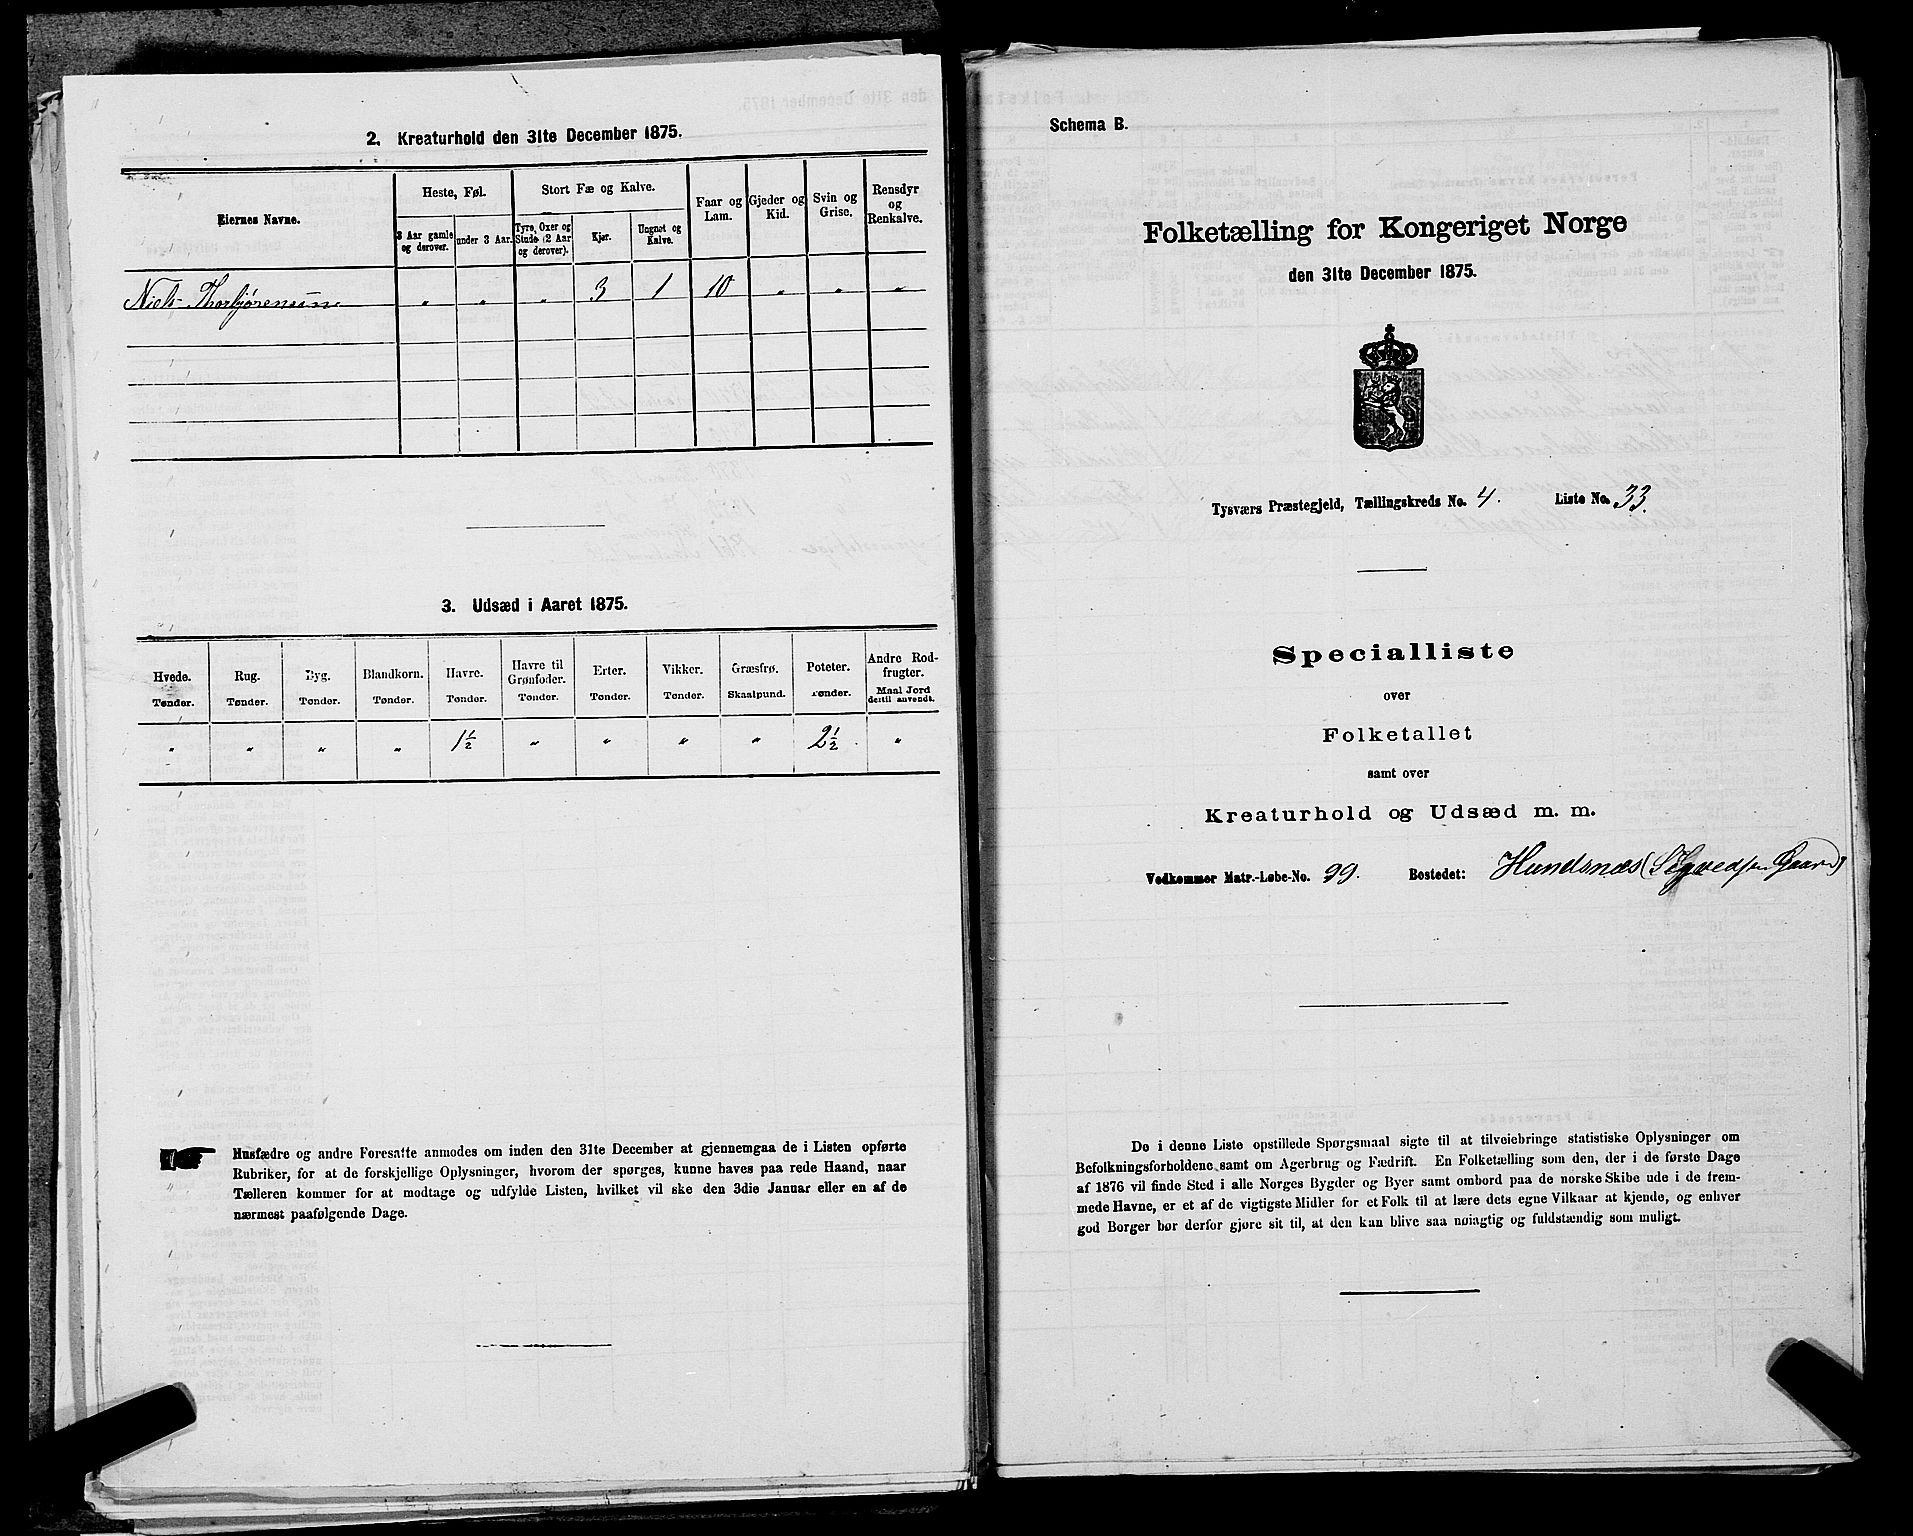 2. Kreaturhold den 31te December 1875.
Eiernes Navne.
Heste, Føl.
Stort Fæ og Kalve.
Faar og Lam.
Gjeder og Kid.
Svin og Grise.
Rensdyr og Renkalve.
3 Aar gamle og derover.
under 3 Aar.
Tyre, Oxer og Stude (2 Aar og derover).
Kjør.
Ungnøt og Kalve.
Niels Thorbjørensen " " " 3 1 10 " " "
3. Udsæd i Aaret 1875.
Hvede. Rug. Byg. Blandkorn. Havre. Havre til Grønfoder. Erter. Vikker. Græsfrø. Poteter. Andre Rodfrugter.
Tønder. Tønder. Tønder. Tønder. Tønder. Tønder. Tønder. Tønder. Skaalpund. Tønder. Maal Jord dertil anvendt.
" " " " 1½ " " " " 2½ "
Husfædre og andre Foresatte anmodes om inden den 31te December at gjennemgaa de i Listen opførte
Rubriker, for at de forskjellige Oplysninger, hvorom der spørges, kunne haves paa rede Haand, naar
Tælleren kommer for at modtage og udfylde Listen, hvilket vil ske den 3die Januar eller en af de
nærmest paafølgende Dage.
Schema B.
Folketælling for Kongeriget Norge
den 31te December 1875.
Tysværs Præstegjeld, Tællingskreds No. 4. Liste No. 33.
Specialliste
over
Folketallet
samt over
Kreaturhold og Udsæd m. m.
Vedkommer Matr.-Løbe-No. 99. Bostedet: Hundsnæs (Sigvedsen Gaard)
De i denne Liste opstillede Spørgsmaal sigte til at tilveiebringe statistiske Oplysninger om
Befolkningsforholdene samt om Agerbrug og Fædrift. En Folketælling som den, der i de første Dage
af 1876 vil finde Sted i alle Norges Bygder og Byer samt ombord paa de norske Skibe ude i de frem-
mede Havne, er et af de vigtigste Midler for et Folk til at lære dets egne Vilkaar at kjende, og enhver
god Borger bør derfor gjøre sit til, at den kan blive saa nøiagtig og fuldstændig som muligt.